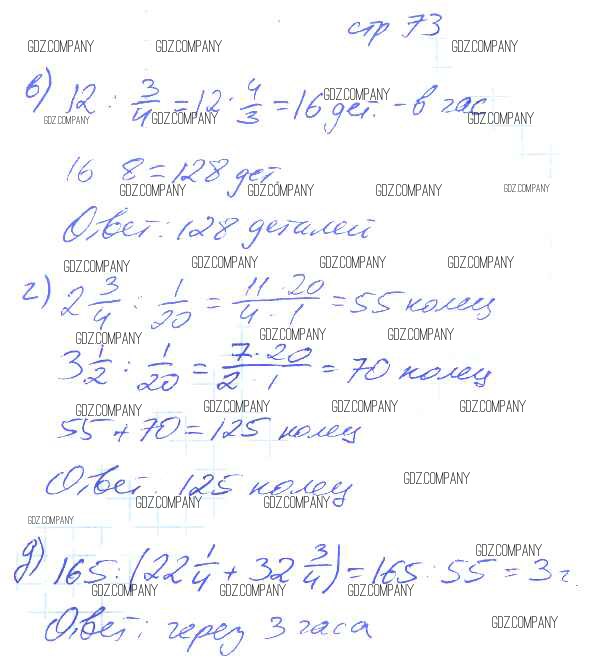 стр 73
GDZ.COMPANY GDZ.COMPANY GDZ.COMPANY
в) 12 : 3/4 = 12 · 4/3 = 16 дет. - в час
GDZ.COMPANY GDZ.COMPANY GDZ.COMPANY GDZ.COMPANY
16 8 = 128 дет.
GDZ.COMPANY GDZ.COMPANY GDZ.COMPANY GDZ.COMPANY
Ответ: 128 деталей
GDZ.COMPANY GDZ.COMPANY GDZ.COMPANY GDZ.COMPANY
г) 2 3/4 : 1/20 = 11 · 20 / 4 · 1 = 55 колец
GDZ.COMPANY GDZ.COMPANY GDZ.COMPANY
3 1/2 : 1/20 = 7 · 20 / 2 · 1 = 70 колец
GDZ.COMPANY GDZ.COMPANY GDZ.COMPANY GDZ.COMPANY
55 + 70 = 125 колец
GDZ.COMPANY
Ответ. 125 колец
GDZ.COMPANY GDZ.COMPANY GDZ.COMPANY
GDZ.COMPANY GDZ.COMPANY
д) 165 : (22 1/4 + 32 3/4) = 165 : 55 = 3 г.
GDZ.COMPANY GDZ.COMPANY GDZ.COMPANY
Ответ: через 3 часа
GDZ.COMPANY